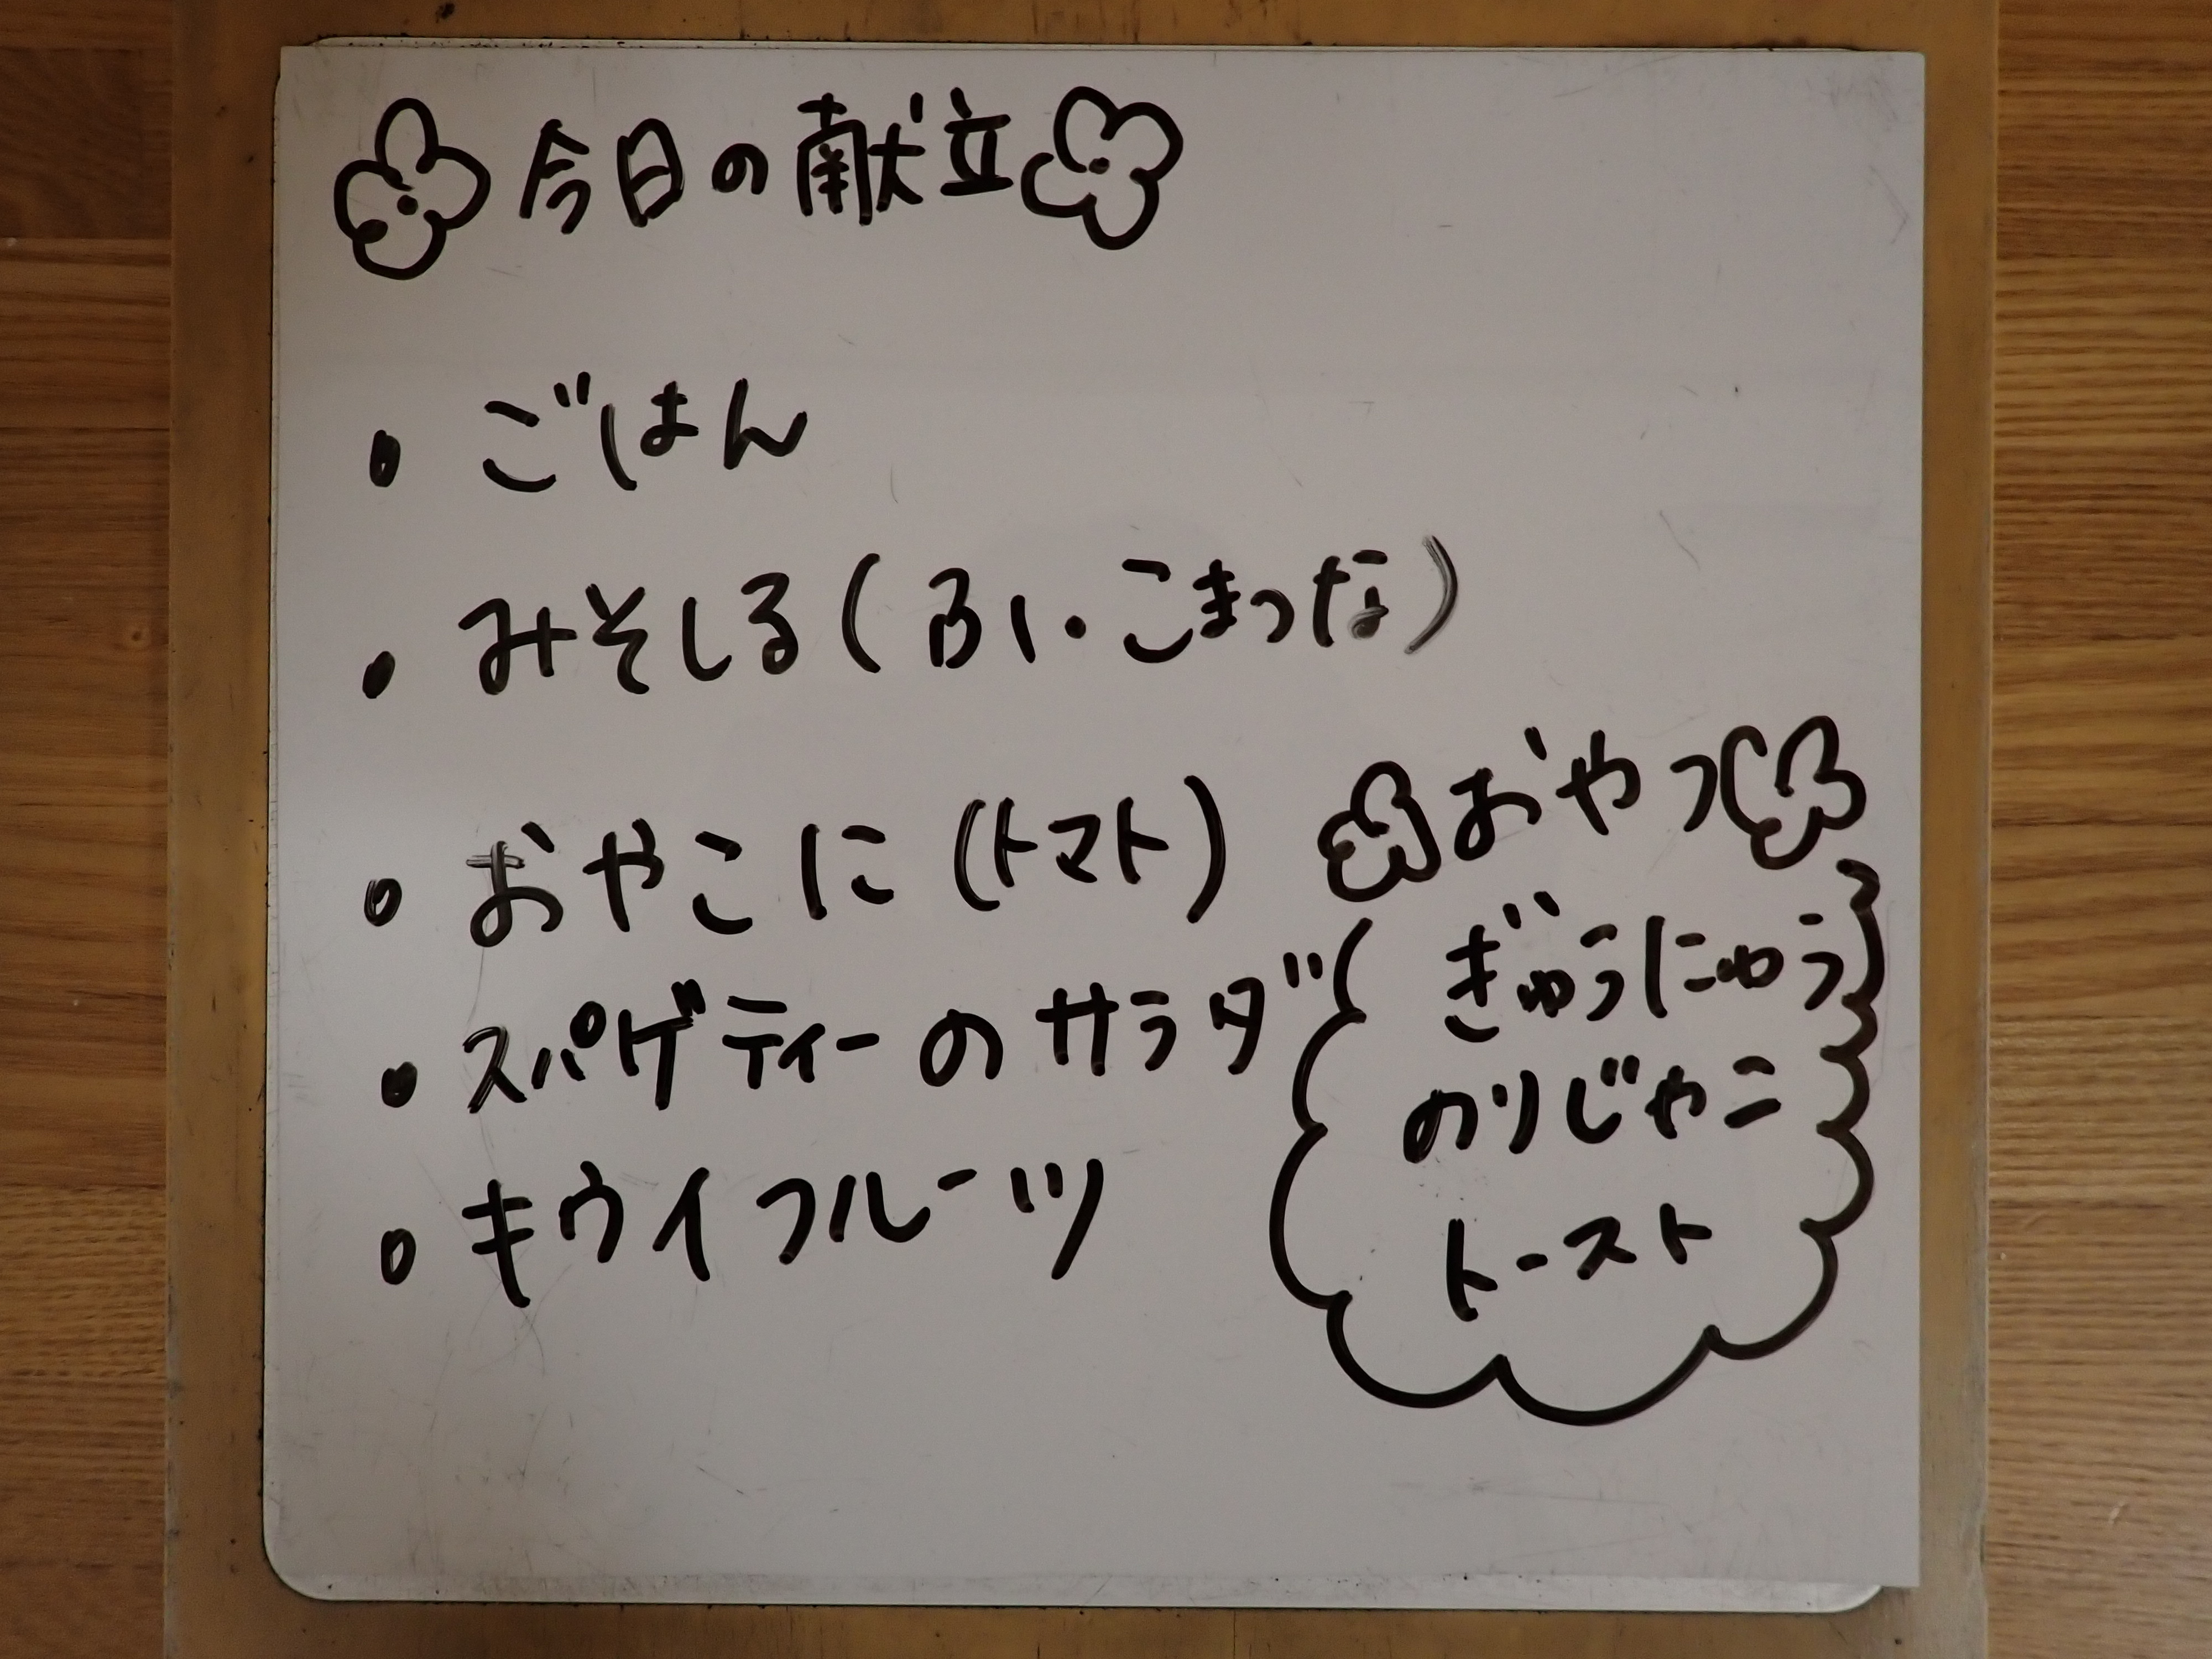 今日の献立
・ごはん
・みそしる(ふ・こまつな)
・おやこに(トマト)
・スパゲティーのサラダ
・キウイフルーツ
おやつ
ぎゅうにゅう
のりじゃこ
トースト